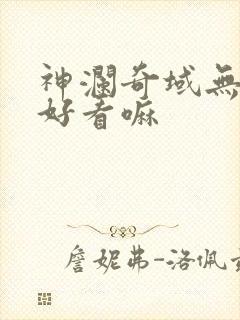 神瀾奇域無
好看嘛
詹妮弗-洛佩